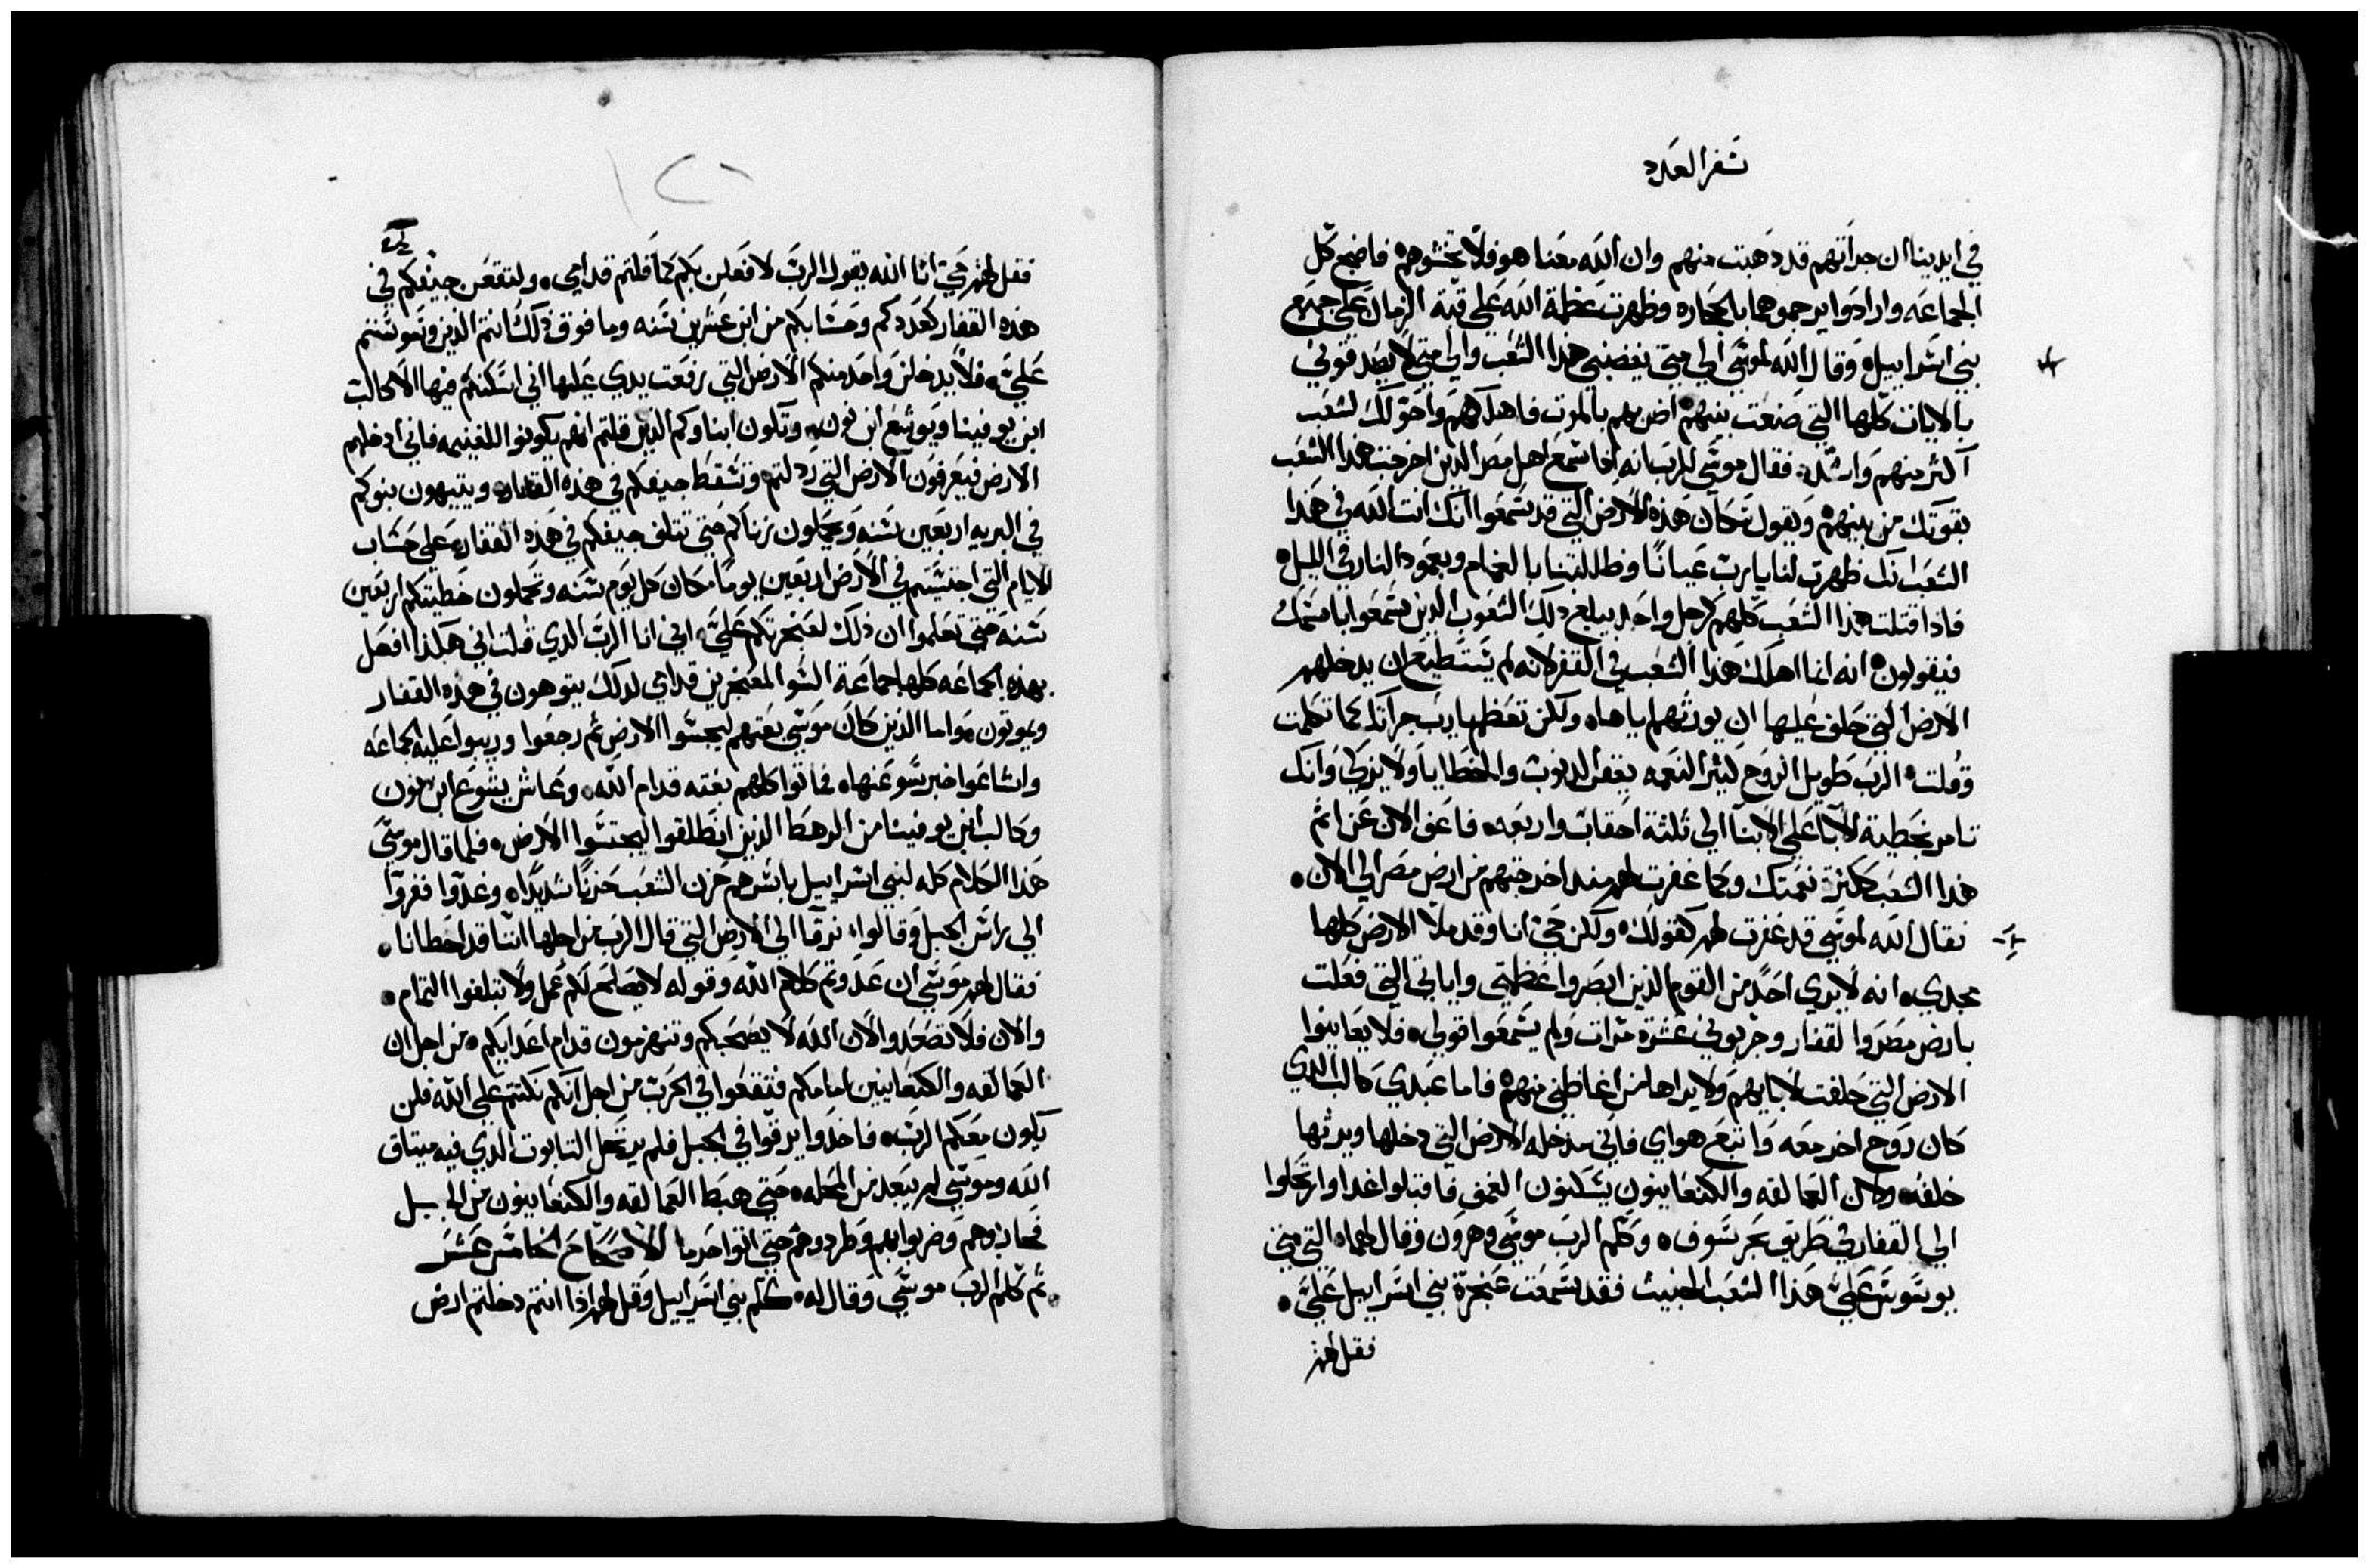 سفر العدد
في ايدينا ان جراتهم قد دهبت منهم وان الله معنا هو فلا تخشوهم فاضج كل
الجماعه وارادوا يرجموهما بالحجاره وظهرت عظمة الله على قبة الزمان على جميع
بني اسراييل وقال الله لموسى الي متي يغضبني هذا الشعب والي متي لا يصدقوني
بالايات كلها التي صنعت بينهم اضربهم بالموت فاهلكهم واحولك لشعب
اكثر منهم واشد فقال موسى للرب انه اذا سمع اهل مصر الذين اخرجت هذا الشعب
بقوتك من بينهم ويقول سكان هذه الارض التي قد سمعوا انك انت الله في هذا
الشعب انك ظهرت لنا يا رب عيانا وظللتنا بالغمام وبعمود النار في الليل
فاذا قتلت هذا الشعب كلهم كرجل واحد يبلغ دلك الشعوب الدين سمعوا باسمك
فيقولون انه انما اهلك هذا الشعب في القفر لانه لم يستطيع ان يدخلهم
الارض التي حلف عليها ان يورثهم اياها ولكن تعظم يا رب جراتك كما تكلمت
وقلت الرب طويل الروح كثير النعمه يغفر الدنوب والخطايا ولا يزكي وانك
تامر بخطية الابا على الابنا الي ثلثة احقاب واربعه فاعف الان عن اثم
هدا الشعب ككثرة نعمتك وكما غفرت لهم مند اخرجتهم من ارض مصر الي الان
فقال الله لموسى قد غفرت لهم كقولك ولكن حي انا وقد ملا الارض كلها
مجدي انه لا يري احد من القوم الذين ابصروا عظمتي واياتي التي فعلت
بارض مصر والقفار وجربوني عشرة مرات ولم يسمعوا قولي فلا يعاينوا
الارض التي حلفت لابايهم ولا يراها من اغاظني منهم فاما عبدي كالب الدي
كان روح اخر معه واتبع هواي فاني مدخله الارض التي دخلها ويرثها
خلفه وكان العمالقه والكنعانيون يسكنون الغمق فاقبلوا غدا وارتحلوا
الي القفار في طريق بحر سوف وكلم الرب موسى وهرون وقال لهما التي متي
يوسوس علي هذا الشعب الخبيث فقد سمعت عنجرة بني اسراييل علي
فقل لهم
١٢٦
فقل لهم حي انا الله يقول الرب لافعلن بكم كما قلتم قدامي ولتقعن جيفكم في
هذه القفار كعددكم وحسابكم من ابن عشرين سنه وما فوق ذلك انتم الذين وسوستم
علي فلا يدخلن واحد منكم الارض التي رفعت يدي عليها اني اسكنكم فيها الا كالب
ابن يوفينا ويوشع ابن نون وتكون ابناوكم الذين قلتم انهم يكونوا للغنيمه فاني ادخلهم
الارض فيعرفون الارض التي ردلتم وتسقط جيفكم في هذه القفار ويتيهون بنوكم
في البريه اربعين سنه ويحملون زناكم حتي تتلف جيفكم في هذه القفار على حساب
الايام التي اجتسستم في الارض اربعين يوما مكان كل يوم سنه وتحملون خطيتكم اربعين
سنة حتي تعلموا ان ذلك لعنجرتكم علي اني انا الرب الدي قلت اني هكذا افعل
بهذه الجماعه كلها جماعة السو المعنجرين قدامي لدلك يتوهون في هذه القفار
ويموتون واما الذين كان موسى بعتهم ليجسوا الارض ثم رجعوا ورببوا عليه الجماعه
واشاعوا خبر سو عنها فماتوا كلهم بغته قدام الله وعاش يشوع ابن نون
وكالب ابن يوفينا من الرهط الذين انطلقوا ليجتسوا الارض فلما قال موسى
هذا الكلام كله لبني اسراييل باسرهم حزن الشعب حزنا شديدا وغدوا ففروا
الي راس الجبل وقالوا نرقا الي الارض التي قال الرب من اجلها اننا قد اخطانا
فقال لهم موسى ان عدوتم كلام الله وقوله لا يصلح لكم عمل ولا تبلغوا التمام
والان فلا تصعدوا لان الله لا يصحبكم وتنهزمون قدام اعدايكم من اجل ان
العمالقه والكنعانيين امامكم فتقعوا في الحرب من اجل انكم نكتتم على الله فلن
يكون معكم الرب فاخدوا يرقوا في الجبل فلم يرتحل التابوت الدي فيه ميتاق
الله وموسى لم يبعد من المحله حتي هبط العمالقه والكنعانيون من الجبل
فحاربوهم وضربوابهم وطردوهم حتي اتوا حرما الاصحاح الخامس عشر
ثم كلم الرب موسى وقال له كلم بني اسراييل وقل لهم اذا انتم دخلتم ارض